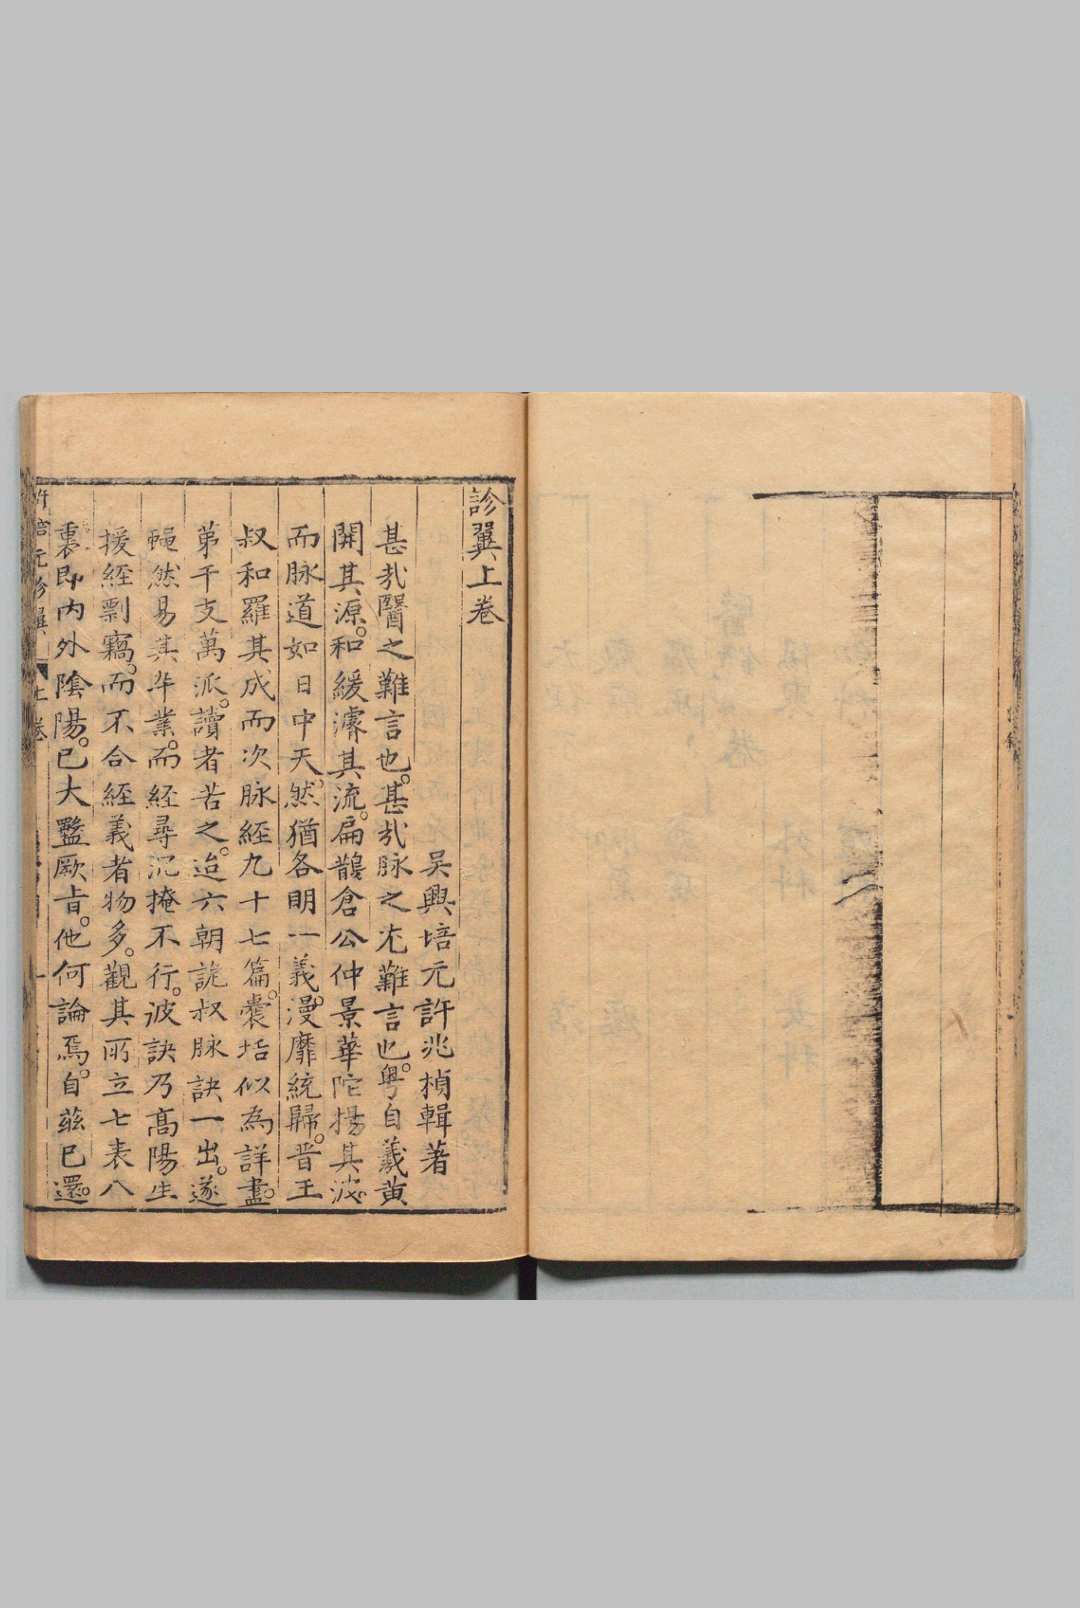 診翼上卷
吳興培元許兆楨輯著
甚哉醫之難言也。甚哉脉之尤難言也。粵自羲黃
開其源。和緩濬其流。扁鵲倉公仲景華陀揚其波。
而脉道如日中天。然猶各明一義。漫靡統歸。晋王
叔和羅其成而次脉經九十七篇。囊括似為詳盡。
第干支萬派。讀者苦之。迨六朝詭叔脉訣一出。遂
䡄然易其卒業。而經尋沉掩不行。波訣乃高陽生
援經剽竊。而不合經義者物多。觀其所立七表八
裏即內外陰陽。已大盭厥旨。他何論焉。自茲已還。
許培元診翼 上卷 一